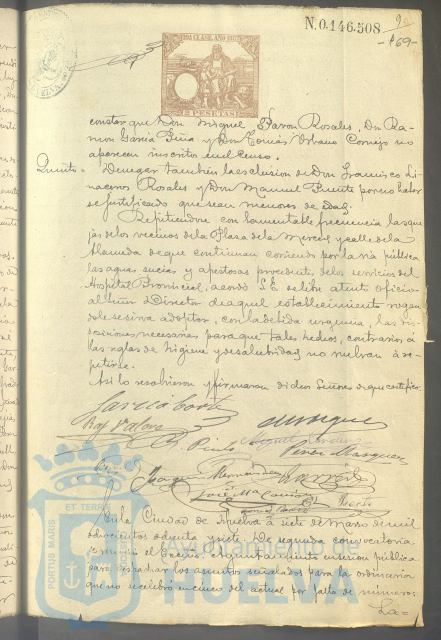 N.0.146.508
-169-
12 PESETAS
constar que Don Miguel Pavon Rosales, Don Ra-
mon Garcia Gina y Don Tomás Urbano Cornejo no
aparecen inscritos en el Censo.
Quinto - Denegar tambien la exclusion de Don Francisco Li-
naceros Rosales y Don Manuel Puente por no haber
se justificado que sean menores de edad.
Repitiendose con lamentable frecuencia las que
jas de los vecinos de la Plaza de la Merced y calle de la
Alameda de que continuan corriendo por la via pública
las aguas sucias y apestosas procedentes de los servicios del
Hospital Provincial, acordó S.E. se libre atento oficio
al Señor Director de aquel establecimiento rogan
dole se sirva adoptar, con la debida urgencia, las dis-
posiciones necesarias para que tales hechos, contrarios á
las reglas de higiene y de salubridad, no vuelvan á re-
petirse.
Así lo resolvieron y firmaron dichos Señores de que certifico.
Garcia Corté
Pinto
Perez Marquez
Joaquin Hernandez
José Mª
En la Ciudad de Huelva á siete de Marzo de mil
ochocientos ochenta y siete. De segunda convocatoria
se reunió el Excmo. Ayuntamiento en sesion pública
para despachar los asuntos señalados para la ordinaria
que no celebró en cinco del actual por falta de numero.
La=
PORTUS MARIS
ET TERRE
Ayuntamiento de
HUELVA